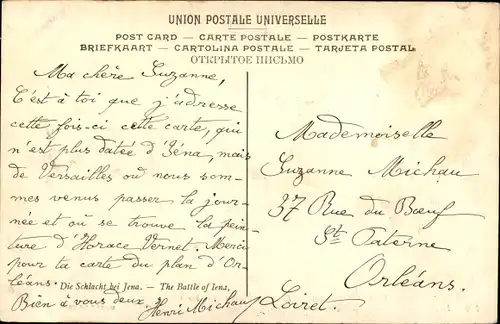 UNION POSTALE UNIVERSELLE
POST CARD — CARTE POSTALE — POSTKARTE
BRIEFKAART — CARTOLINA POSTALE — TARJETA POSTAL
ОТКРЫТОЕ ПИСЬМО
Ma chère Suzanne,
C'est à toi que j'adresse
cette fois-ci cette carte, qui
n'est plus datée d'Iéna, mais
de Versailles où nous som-
mes venus passer la jour-
née et où se trouve la pein-
ture d'Horace Vernet. Merci
pour ta carte du plan d'Or-
léans.
Die Schlacht bei Jena. — The Battle of Iena.
Bien à vous deux. Henri Michau
Mademoiselle
Suzanne Michau
37 Rue du Bœuf
St Paterne
Orléans.
Loiret.